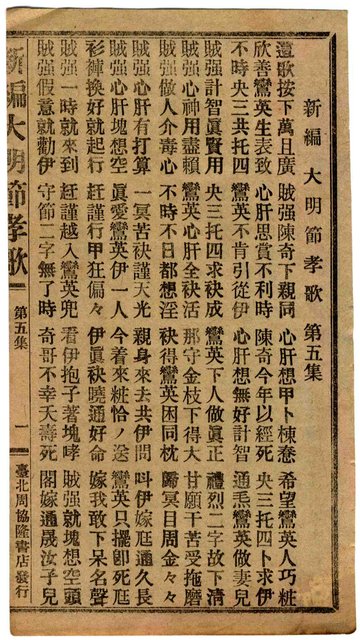 新編 大明節孝歌 第五集
這歌按下萬且廣 賊强陳奇下親同 心肝想甲卜棟憃 希望鸞英人巧粧
欣善鸞英生表致 心肝思賞不利時 陳奇今年以經死 央三托四卜求伊
不時央三共托四 鸞英不肯引從伊 心肝想無好計智 通毛鸞英做妻兒
賊强計智眞賢用 央三托四求袂成 鸞英下人做眞正 禮烈二字故下淸
賊强心神用盡賴 鸞英心肝全袂活 那守金枝下得大 甘願干苦受拖磨
賊强做人介毒心 不時不日都想淫 袂得鸞英困同枕 歸冥日周金々々
賊强心肝有打算 一冥苦袂謹天光 親身來去共伊問 呌伊嫁尫通久長
賊强心肝塊想空 眞愛鸞英伊一人 今着來粧恰ノ 鸞英只擺卽死尫
衫褲換好就起行 赶謹行甲狂偏々 伊眞袂曉通好命 嫁我敢下呆名聲
賊强一時就來到 赶謹越入鸞英兜 看伊抱子著塊哮 賊强就塊想空頭
賊强假意就勸伊 守節二字無了時 奇哥不幸夭壽死 閣嫁通晟汝子兒
新編大明節孝歌 第五集 一 臺北周協隆書店發行